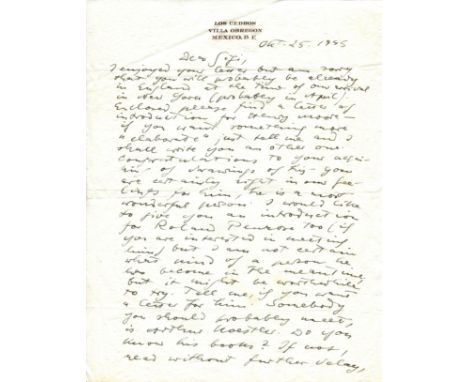 LOS CEDROS
VILLA OBREGON
MEXICO, D. F.
Oct. 25. 1945
Dear Sigi,
I enjoyed your letter but am sorry
that you will probably be already
in England at the time of our arrival
in New York (probably in April)
Enclosed please find a letter of
introduction for Henry Moore —
if you want something more
"elaborate" just tell me and I
shall write you an other one.
Congratulations to your
of drawings of his — you
are certainly right in our feelings
for him, he is a most
wonderful person. I would like
to give you an introduction
for Roland Penrose too (if
you are interested in meeting
him) but I am not certain
what kind of a person he
has become in the meantime
but it might be worthwhile
to try. Tell me, if you want
a letter for him. Somebody
you should probably meet,
is Arthur Koestler. Do you
know his books? If not,
read without further delay,